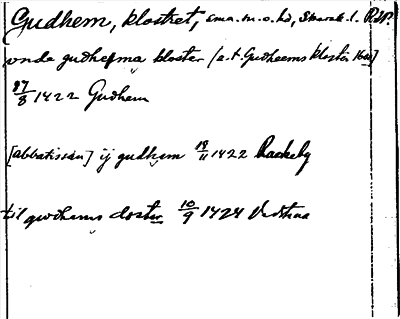 Gudhem, klostret, sma. m. o. hd, Skarab. l. RAP.
vnda gudhema kloster [a. t. Gudheems kloster 16..]
27/3 1422 Gudhem
[abbatissan] ij gudhem 18/11 1422 Rackeby
til gudhems closter 10/9 1424 Vadstena